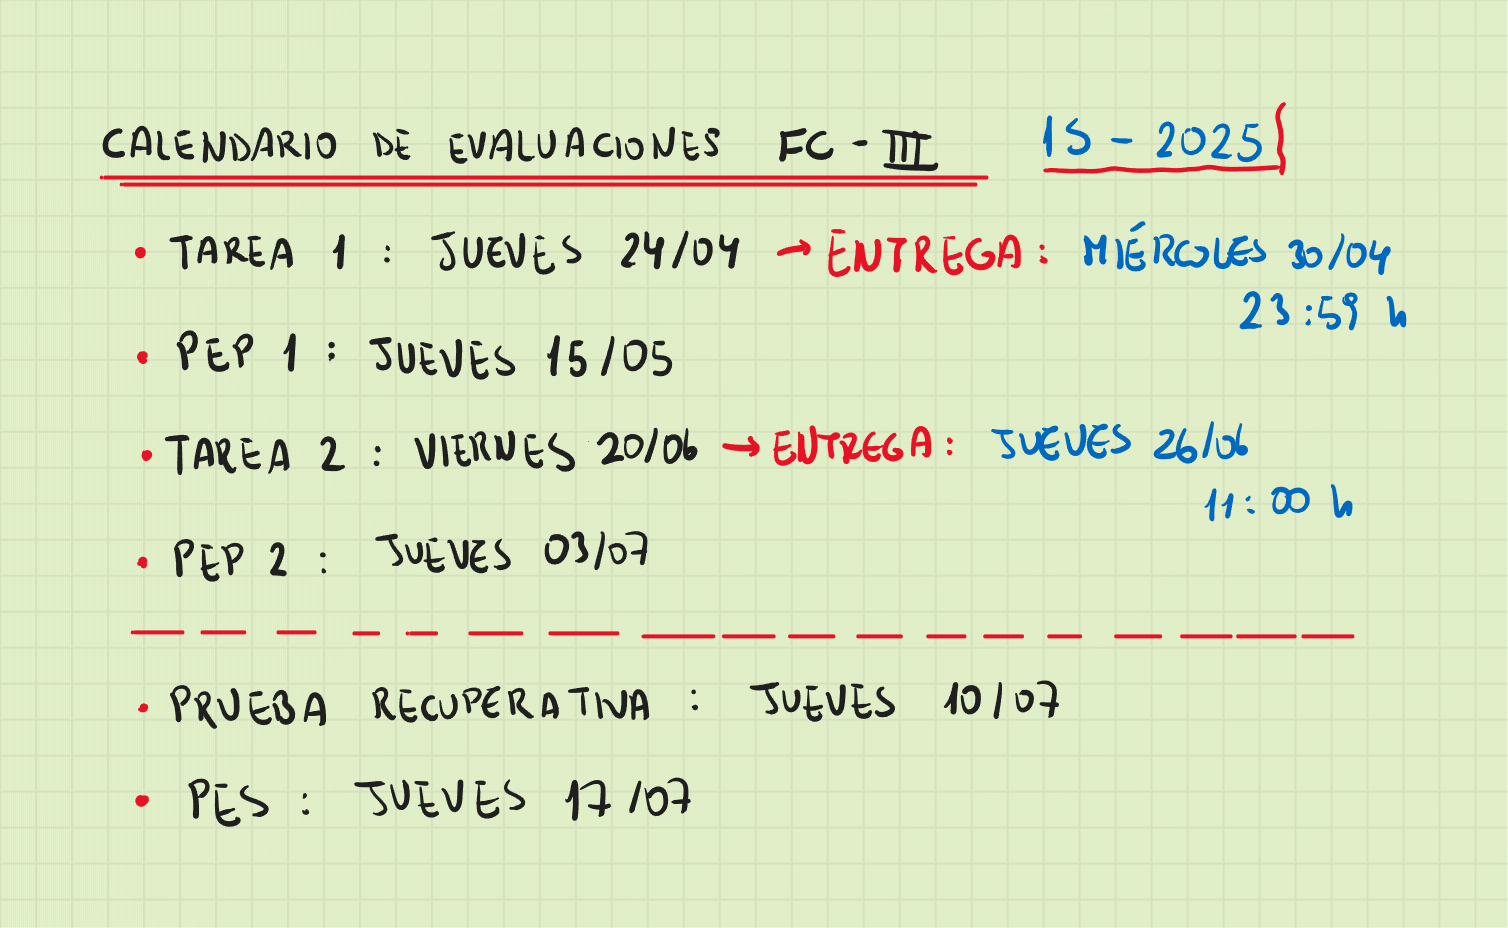 CALENDARIO DE EVALUACIONES FC - III 1S - 2025
• TAREA 1 : JUEVES 24/04 → ENTREGA : MIÉRCOLES 30/04
23:59 h
• PEP 1 : JUEVES 15/05
• TAREA 2 : VIERNES 20/06 → ENTREGA : JUEVES 26/06
11:00 h
• PEP 2 : JUEVES 03/07
• PRUEBA RECUPERATIVA : JUEVES 10/07
• PES : JUEVES 17/07